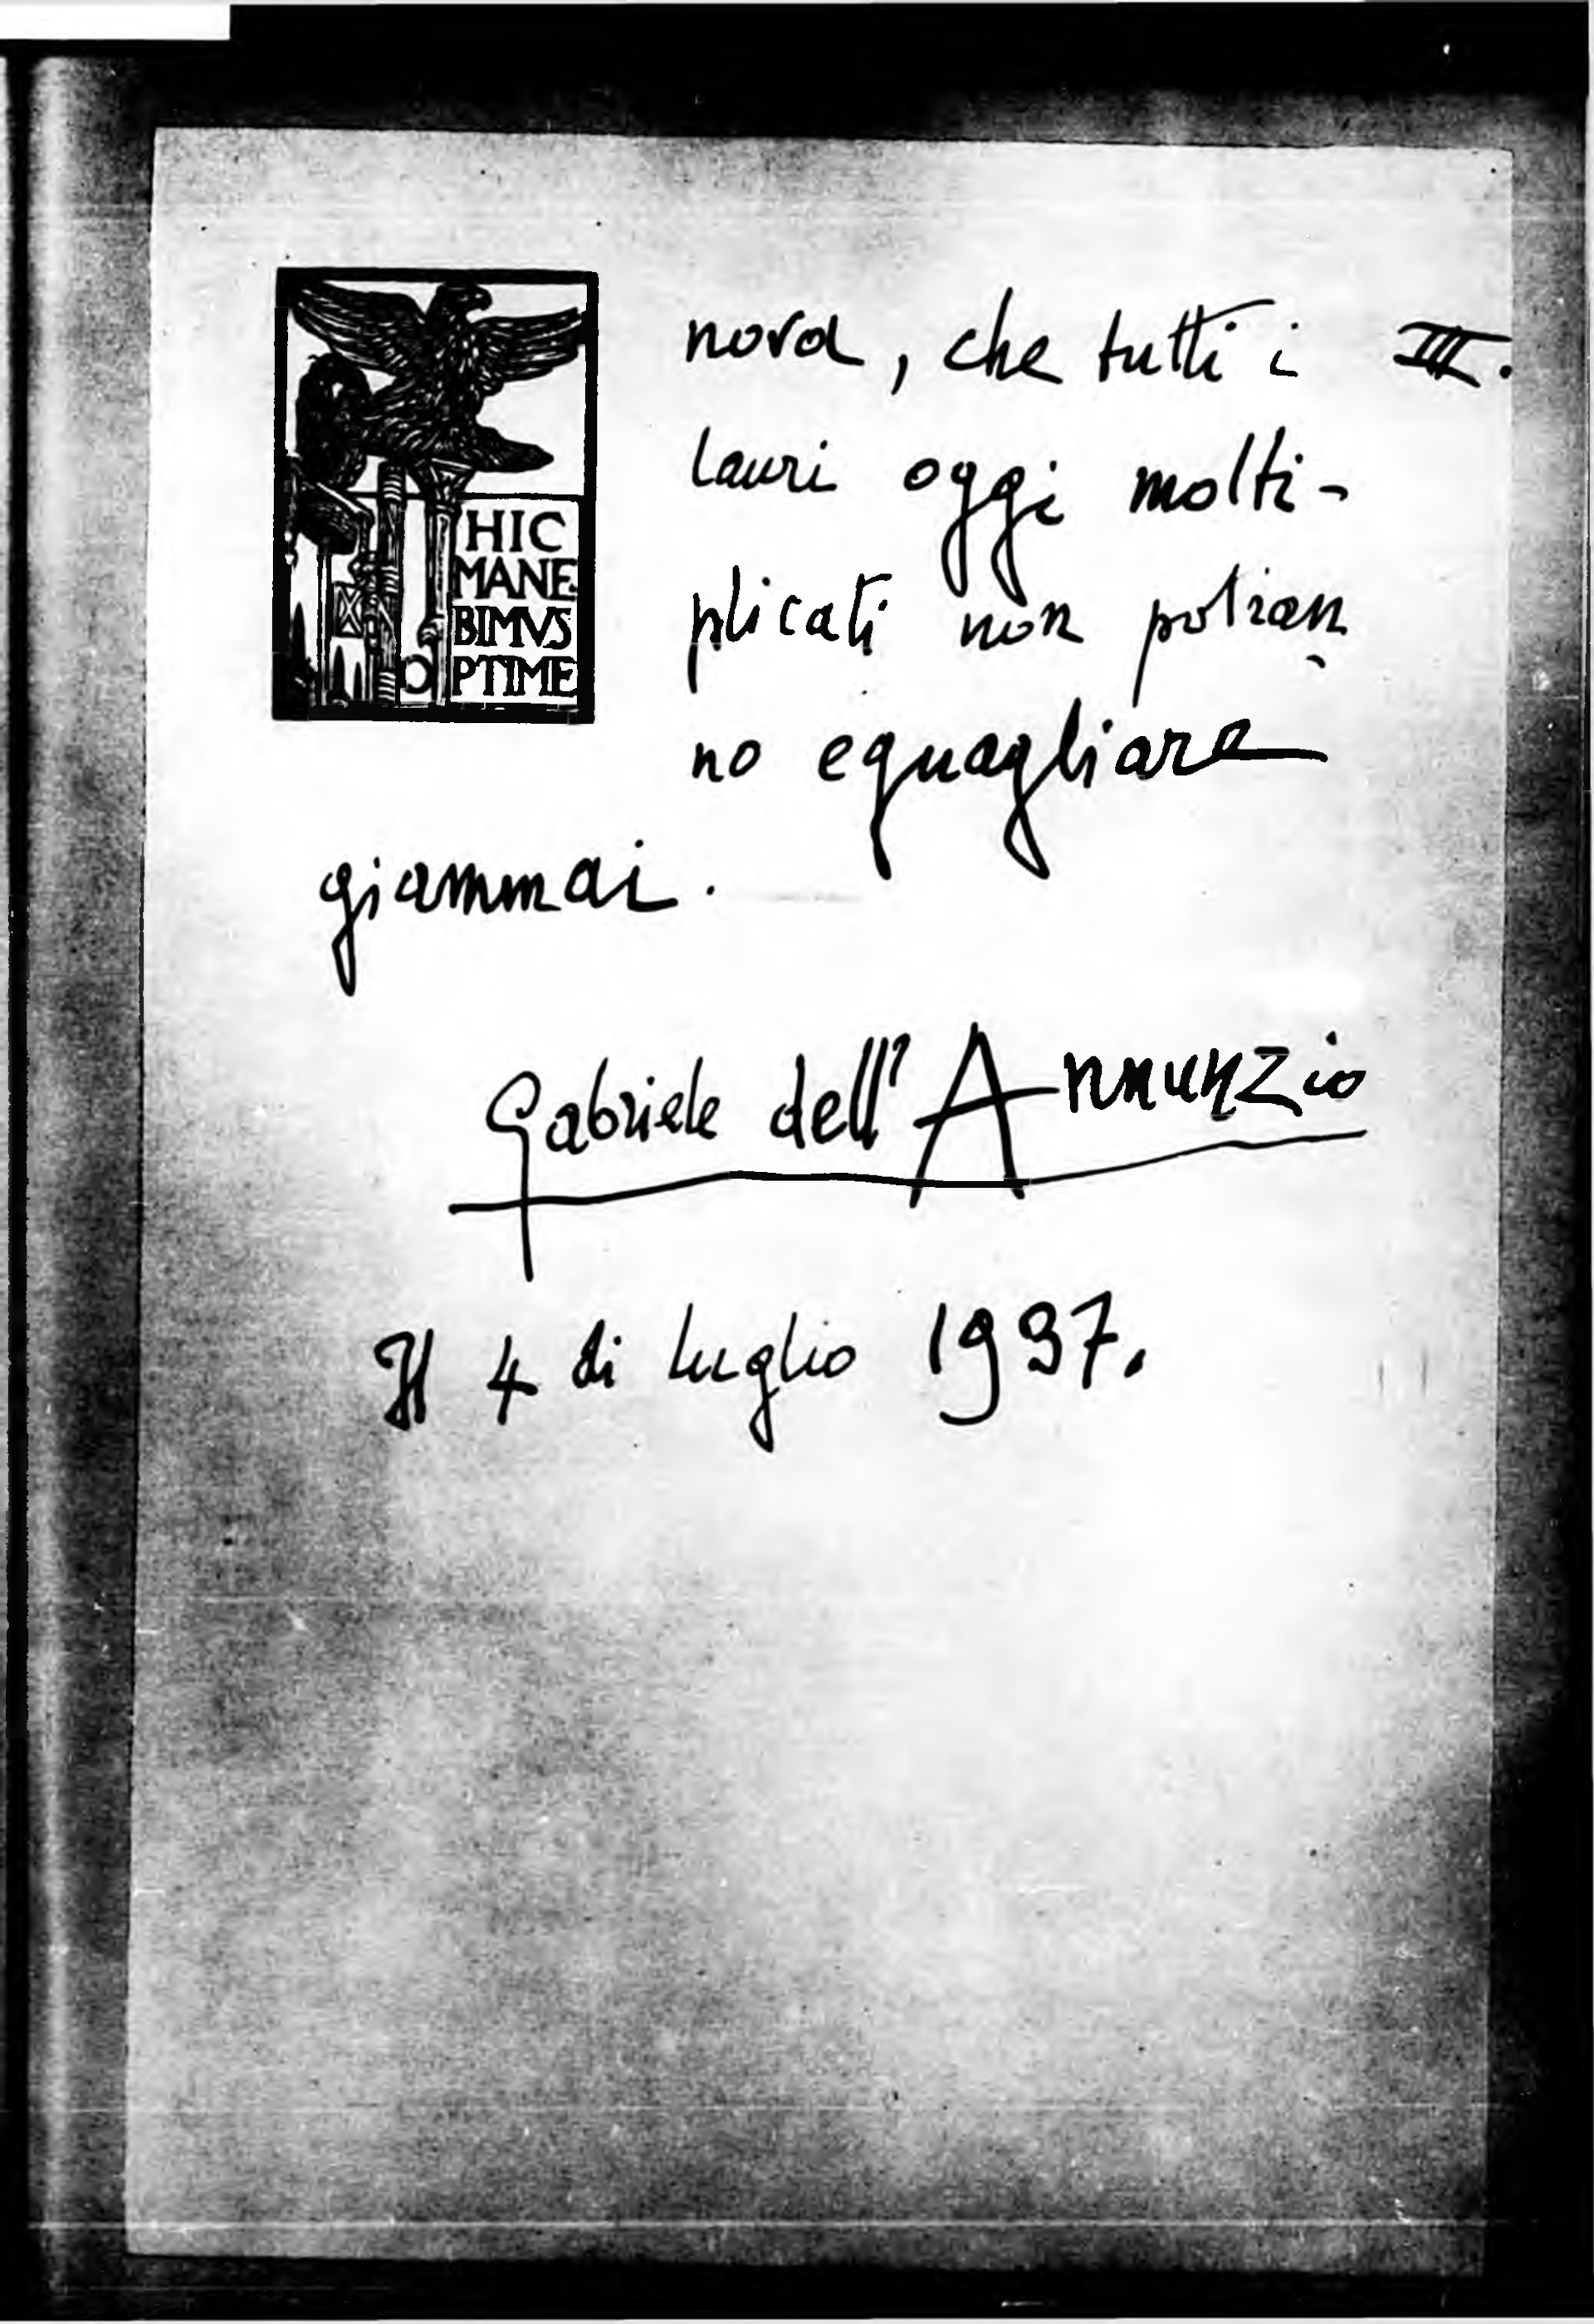 HIC
MANE
BIMVS
OPTIME
nova, che tutti i III.
lauri oggi molti-
plicati non potran
no eguagliare
giammai.
Gabriele dell'Annunzio
Il 4 di luglio 1937.